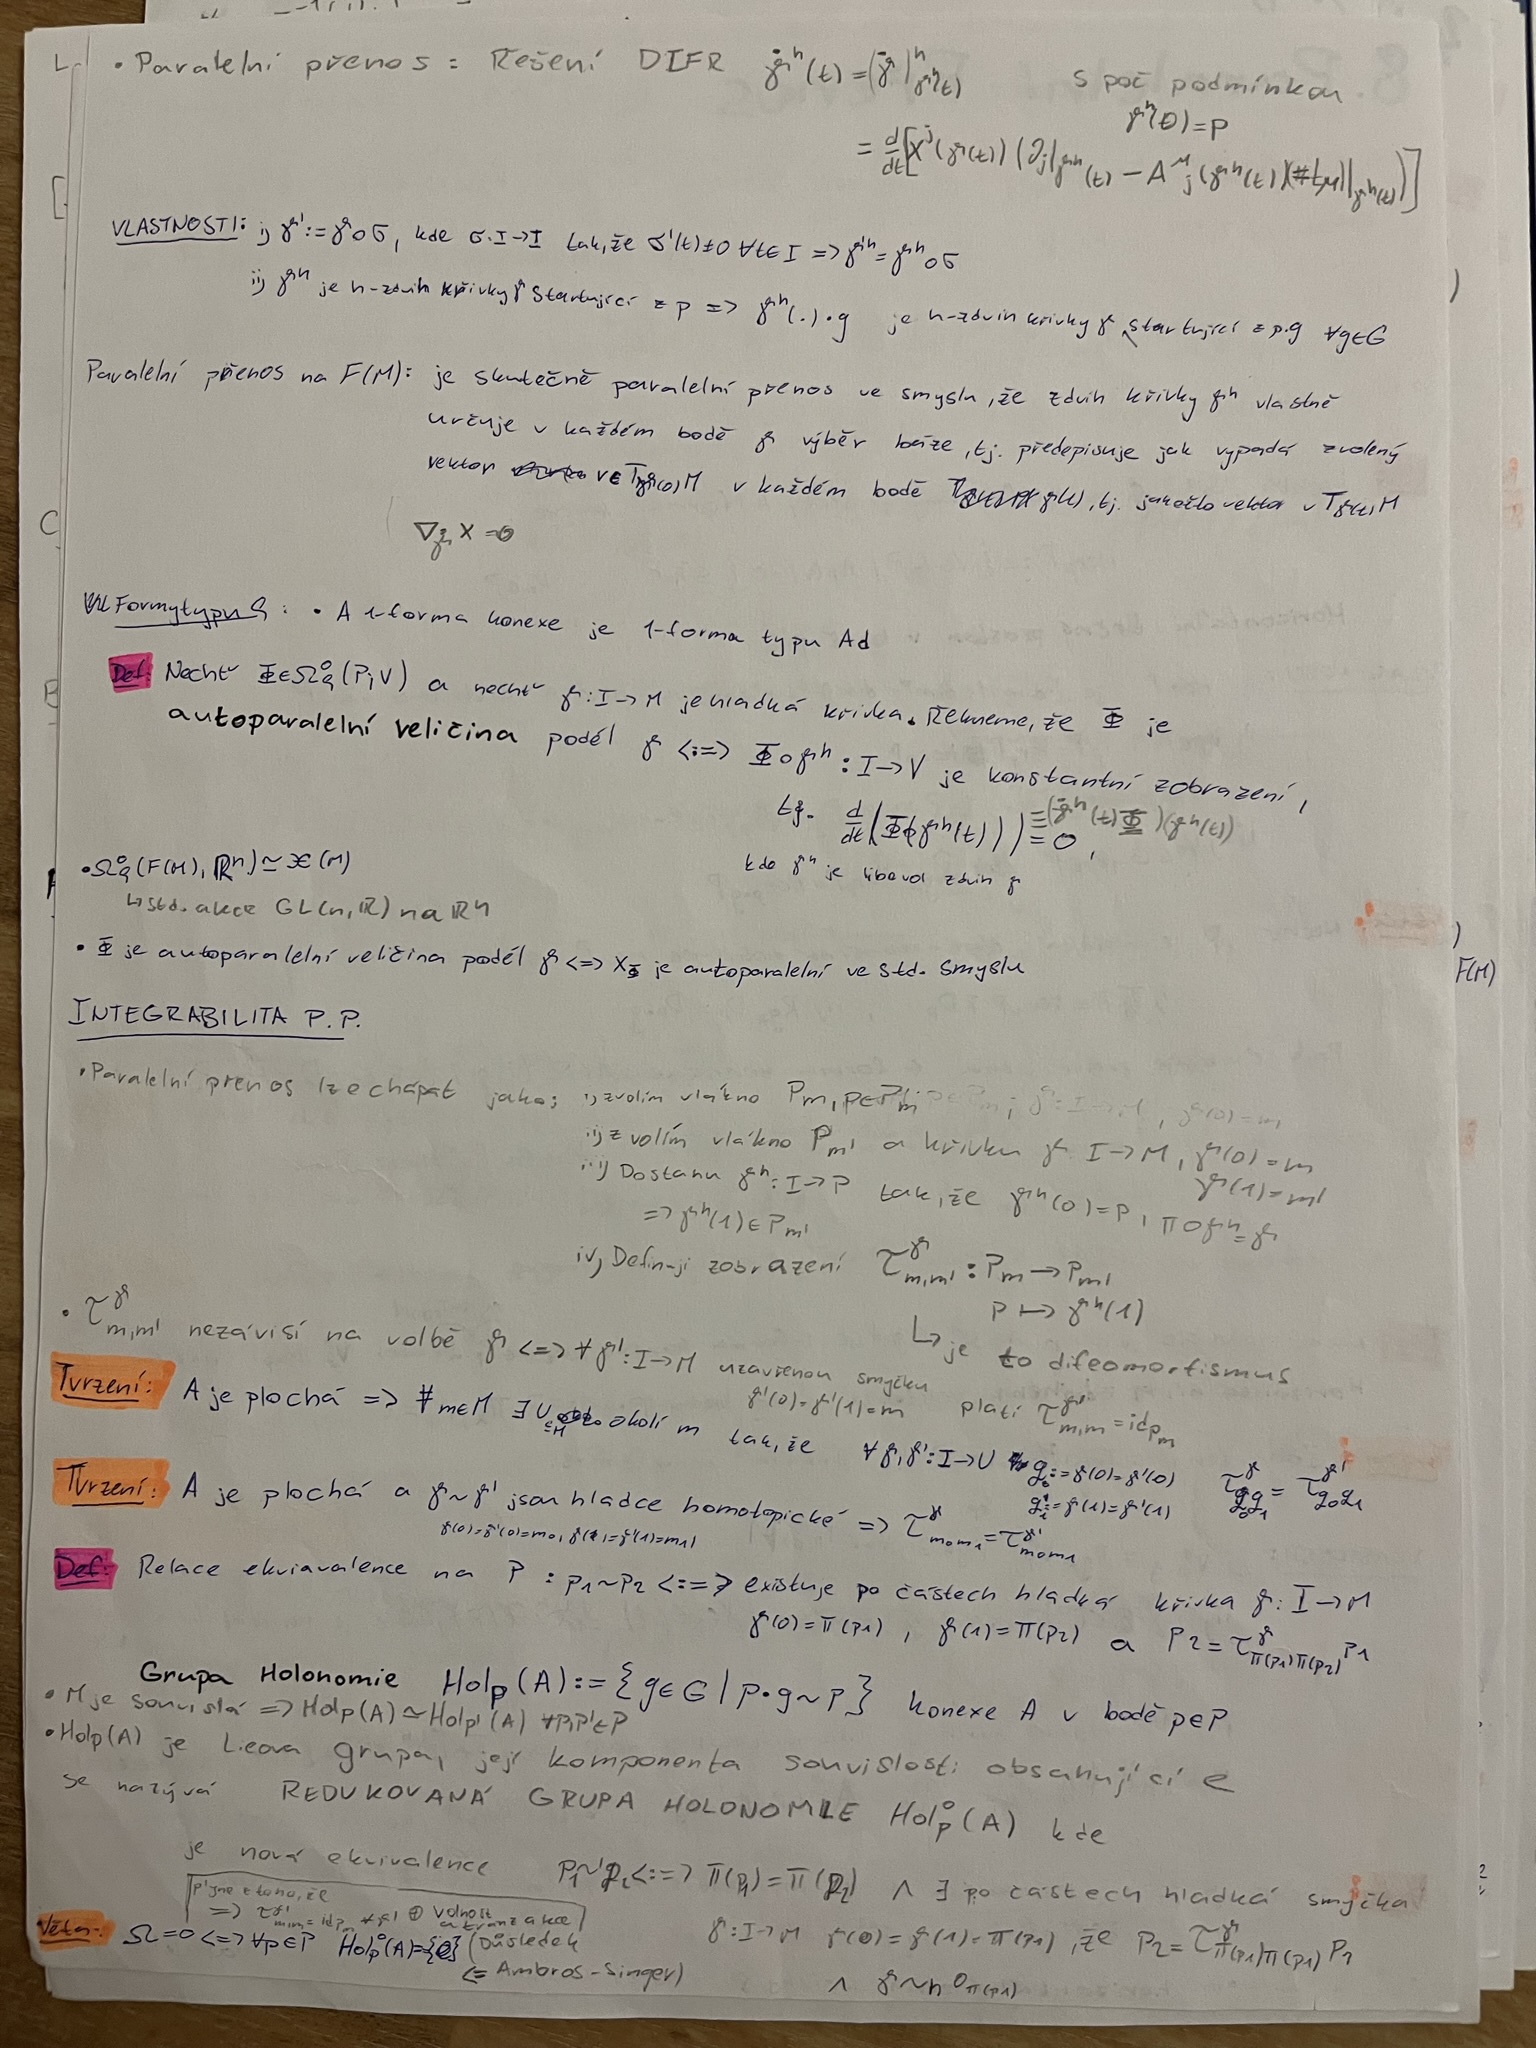 • Paralelní přenos = Řešení DIFR γ̇ʰ(t) = (γ̇)ʰ_γʰ(t) s poč podmínkou
γʰ(0)=P
= d/dt[xʲ(γ(t)) (∂ⱼ|γʰ(t) − Aᵘⱼ(γʰ(t))(#tμ)|γʰ(t))]
VLASTNOSTI: i) γ' := γ∘σ, kde σ: I→I tak, že σ'(t)≠0 ∀t∈I => γ'ʰ = γʰ∘σ
ii) γʰ je h-zdvih křivky γ startující z p => γʰ(.)•g je h-zdvih křivky γ startující z p.g ∀g∈G
Paralelní přenos na F(M): je skutečně paralelní přenos ve smyslu, že zdvih křivky γʰ vlastně
určuje v každém bodě γ výběr báze, tj. předepisuje jak vypadá zvolený
vektor v∈T_γ(0)M v každém bodě γ(t), tj. jakožto vektor v T_γ(t)M
∇_γ̇ X = 0
Formy typu ϱ: • A 1-forma konexe je 1-forma typu Ad
Def: Nechť Φ∈Ω⁰_ϱ(P,V) a nechť γ: I→M je hladká křivka. Řekneme, že Φ je
autoparalelní veličina podél γ <:=> Φ∘γʰ: I→V je konstantní zobrazení,
tj. d/dt(Φ(γʰ(t))) ≡ (γ̇ʰ(t)Φ)(γʰ(t)) = 0,
kde γʰ je libovol zdvih γ
• Ω⁰_ϱ(F(M), ℝⁿ) ≃ 𝔛(M)
↳ std. akce GL(n,ℝ) na ℝⁿ
• Φ je autoparalelní veličina podél γ <=> X_Φ je autoparalelní ve std. smyslu
INTEGRABILITA P.P.
• Paralelní přenos lze chápat jako: i) zvolím vlákno P_m, p∈P_m
ii) zvolím vlákno P_m' a křivku γ: I→M, γ(0)=m
γ(1)=m'
iii) Dostanu γʰ: I→P tak, že γʰ(0)=P, π∘γʰ=γ
=> γʰ(1)∈P_m'
iv) Defin-ji zobrazení τ^γ_m,m' : P_m → P_m'
p ↦ γʰ(1)
↳ je to difeomorfismus
• τ^γ_m,m' nezávisí na volbě γ <=> ∀γ': I→M uzavřenou smyčku
γ'(0)=γ'(1)=m platí τ^γ'_m,m = id_P_m
Tvrzení: A je plochá => ∀m∈M ∃U⊆M okolí m tak, že ∀γ,γ': I→U g₀:=γ(0)=γ'(0) τ^γ_g₀g₁ = τ^γ'_g₀g₁
g₁:=γ(1)=γ'(1)
Tvrzení: A je plochá a γ~γ' jsou hladce homotopické => τ^γ_m₀m₁ = τ^γ'_m₀m₁
γ(0)=γ'(0)=m₀, γ(1)=γ'(1)=m₁
Def: Relace ekviavalence na P : p₁~p₂ <:=> existuje po částech hladká křivka γ: I→M
γ(0)=π(p₁), γ(1)=π(p₂) a p₂=τ^γ_π(p₁)π(p₂) p₁
Grupa Holonomie Hol_p(A):={g∈G | p•g~p} konexe A v bodě p∈P
• M je souvislá => Hol_p(A)≃Hol_p'(A) ∀p,p'∈P
• Hol_p(A) je Lieova grupa, její komponenta souvislosti obsahující e
se nazývá REDUKOVANÁ GRUPA HOLONOMIE Hol⁰_p(A) kde
je nová ekvivalence p₁~'p₂ <:=> π(p₁)=π(p₂) ∧ ∃ po částech hladká smyčka
γ: I→M γ(0)=γ(1)=π(p₁), že p₂=τ^γ_π(p₁)π(p₁) p₁
∧ γ~ₕ 0_π(p₁)
plyne z toho, že
=> τ^γ'_m,m = id_P_m ∀γ' ⊕ volnost
a tranz akce
Věta: Ω=0 <=> ∀p∈P Hol⁰_p(A)={e} (Důsledek
<= Ambros-Singer)
F(M)